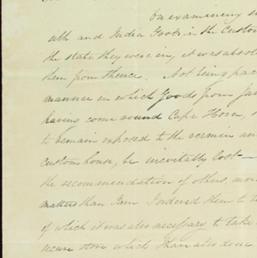 On examining
and India Goods in the Custom
the state they were in, it was absol
them from thence. Not being pac
manner in which Goods from
having come round Cape Horn,
to remain exposed to the vermin
custom house, be inevitably lost
the recommendation of others, more
matters than I am I ordered them to
of which it was also necessary to take
store which I have also done